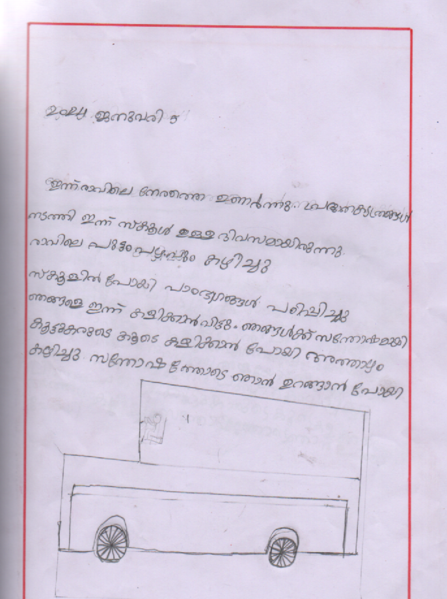 ജനുവരി 5
ഇന്ന് രാവിലെ നേരത്തെ ഉണർന്നു. പ്രഭാതകൃത്യങ്ങൾ
നടത്തി ഇന്ന് സ്കൂൾ ഉള്ള ദിവസമായിരുന്നു.
രാവിലെ പുട്ടും പഴവും കഴിച്ചു
സ്കൂളിൽ പോയി പാഠഭാഗങ്ങൾ പഠിച്ചു
ഞങ്ങളെ ഇന്ന് കളിക്കാൻ വിട്ടു. ഞങ്ങൾക്ക് സന്തോഷമായി
കൂട്ടുകാരുടെ കൂടെ കളിക്കാൻ പോയി അത്താഴം
കഴിച്ചു സന്തോഷത്തോടെ ഞാൻ ഉറങ്ങാൻ പോയി